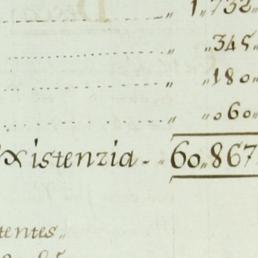 1,,732
,, ,,345
,, ,,180,,
,, ,,060,,
Existenzia - 60,,867
tentes,,